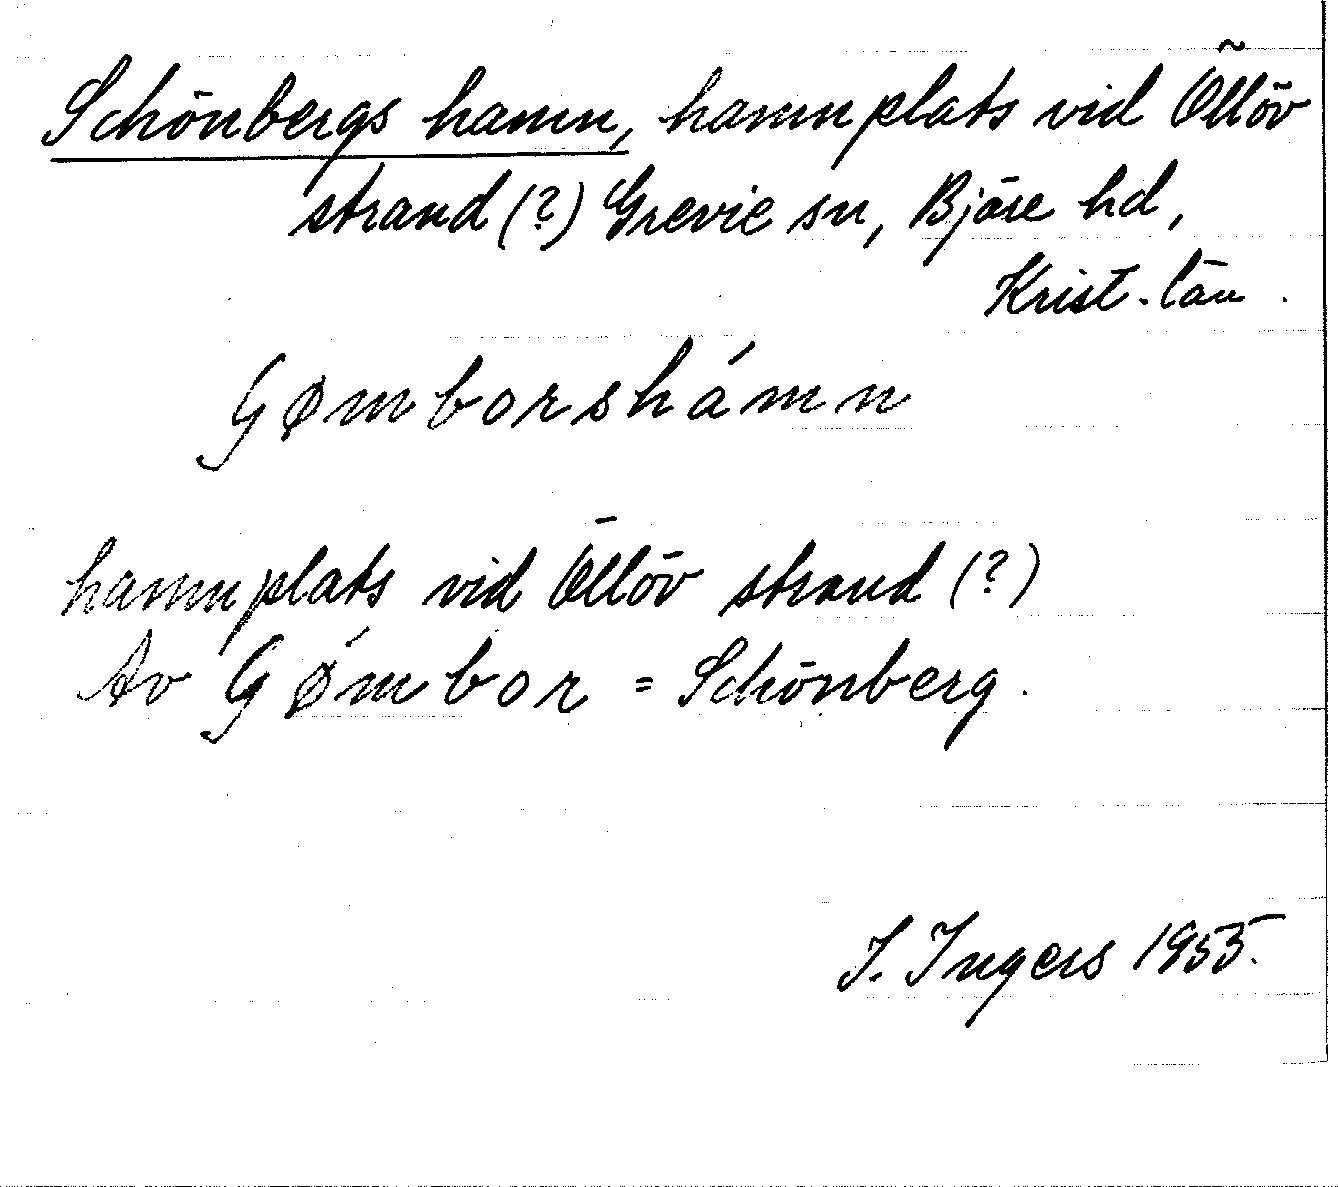 Schönbergs hamn, hamnplats vid Öllöv
strand (?) Grevie sn, Bjäre hd,
Krist. län.
Gømborshámn
hamnplats vid Öllöv strand (?)
Av Gǿmbor = Schönberg.
I. Ingers 1955.